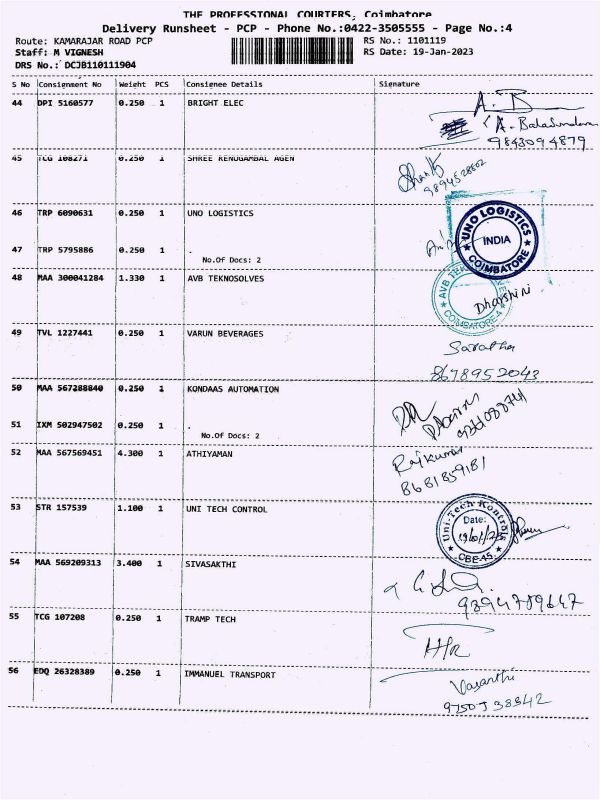 THE PROFESSIONAL COURIERS, Coimbatore
Delivery Runsheet - PCP - Phone No.:0422-3505555 - Page No.:4
Route: KAMARAJAR ROAD PCP
RS No.: 1101119
Staff: M VIGNESH
RS Date: 19-Jan-2023
DRS No.: DCJB110111904
S No Consignment No Weight PCS Consignee Details Signature
44 DPI 5160577 0.250 1 BRIGHT ELEC
A. Balasundaram
9843094879
45 TCG 108271 0.250 1 SHREE RENUGAMBAL AGEN
9894528602
46 TRP 6090631 0.250 1 UNO LOGISTICS
UNO LOGISTICS
INDIA
COIMBATORE
47 TRP 5795886 0.250 1 .
No.Of Docs: 2
48 MAA 300041284 1.330 1 AVB TEKNOSOLVES
Dharshini
COIMBATORE-4
49 TVL 1227441 0.250 1 VARUN BEVERAGES
8678952043
50 MAA 567288840 0.250 1 KONDAAS AUTOMATION
51 IXM 502947502 0.250 1 .
No.Of Docs: 2
52 MAA 567569451 4.300 1 ATHIYAMAN
Rajkumar
8681859181
53 STR 157539 1.100 1 UNI TECH CONTROL
Uni-Tech Kontrols
Date:
CBE-45
54 MAA 569209313 3.400 1 SIVASAKTHI
9394789647
55 TCG 107208 0.250 1 TRAMP TECH
56 EDQ 26328389 0.250 1 IMMANUEL TRANSPORT
Vasanthi